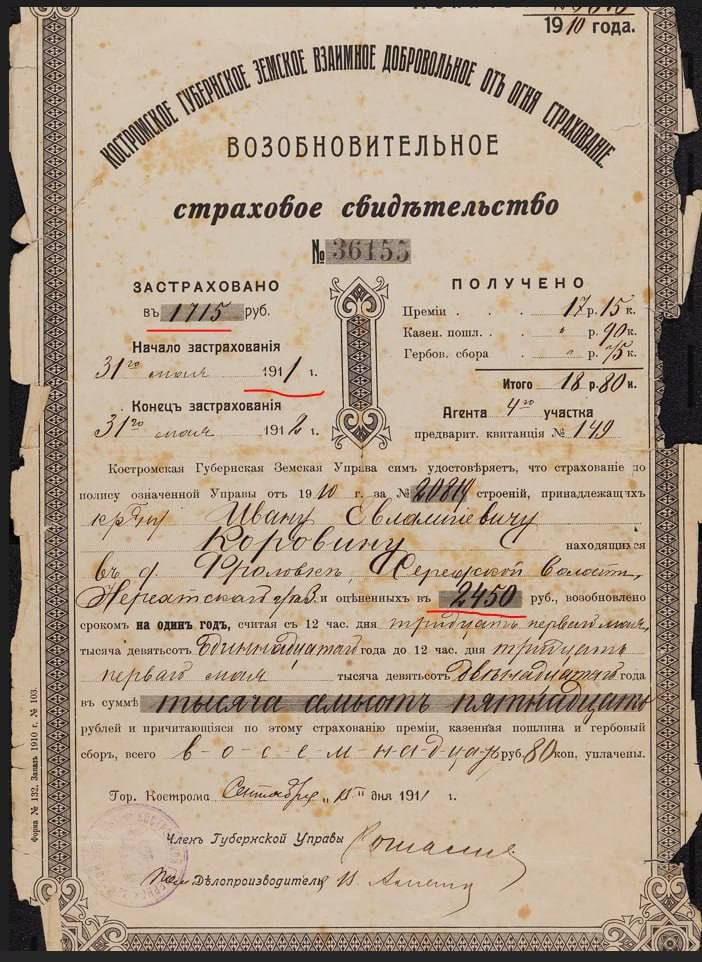 1910 года.
КОСТРОМСКОЕ ГУБЕРНСКОЕ ЗЕМСКОЕ ВЗАИМНОЕ ДОБРОВОЛЬНОЕ ОТЪ ОГНЯ СТРАХОВАНІЕ.
ВОЗОБНОВИТЕЛЬНОЕ
страховое свидѣтельство
№ 36155
ЗАСТРАХОВАНО
въ 1715 руб.
Начало застрахованія
31го мая 1911 г.
Конецъ застрахованія
31го мая 1912 г.
ПОЛУЧЕНО
Преміи . . . 17 р. 15 к.
Казен. пошл. . " р. 90 к.
Гербов. сбора . " р. 75 к.
Итого 18 р. 80 к.
Агента 4го участка
предварит. квитанція № 149
Костромская Губернская Земская Управа симъ удостовѣряетъ, что страхованіе по
полису означенной Управы отъ 1910 г. за № 20819 строеній, принадлежащихъ
Ивану Евлампіевичу
Коровину находящихся
въ д. Фроловкѣ, волости,
Нерехтскаго и оцѣненныхъ въ 2450 руб., возобновлено
срокомъ на одинъ годъ, считая съ 12 час. дня тридцать перваго мая,
тысяча девятьсотъ Одиннадцатаго года до 12 час. дня тридцать
перваго мая тысяча девятьсотъ Двѣнадцатаго года
въ суммѣ тысяча семьсотъ пятнадцать
рублей и причитающіяся по этому страхованію преміи, казенная пошлина и гербовый
сборъ, всего в-о-с-е-м-н-а-д-ц-а-ть руб. 80 коп. уплачены.
Гор. Кострома Сентября "15" дня 1911 г.
Членъ Губернской Управы
Пом. Дѣлопроизводителя
Форма № 132. Заказъ 1910 г. № 103.